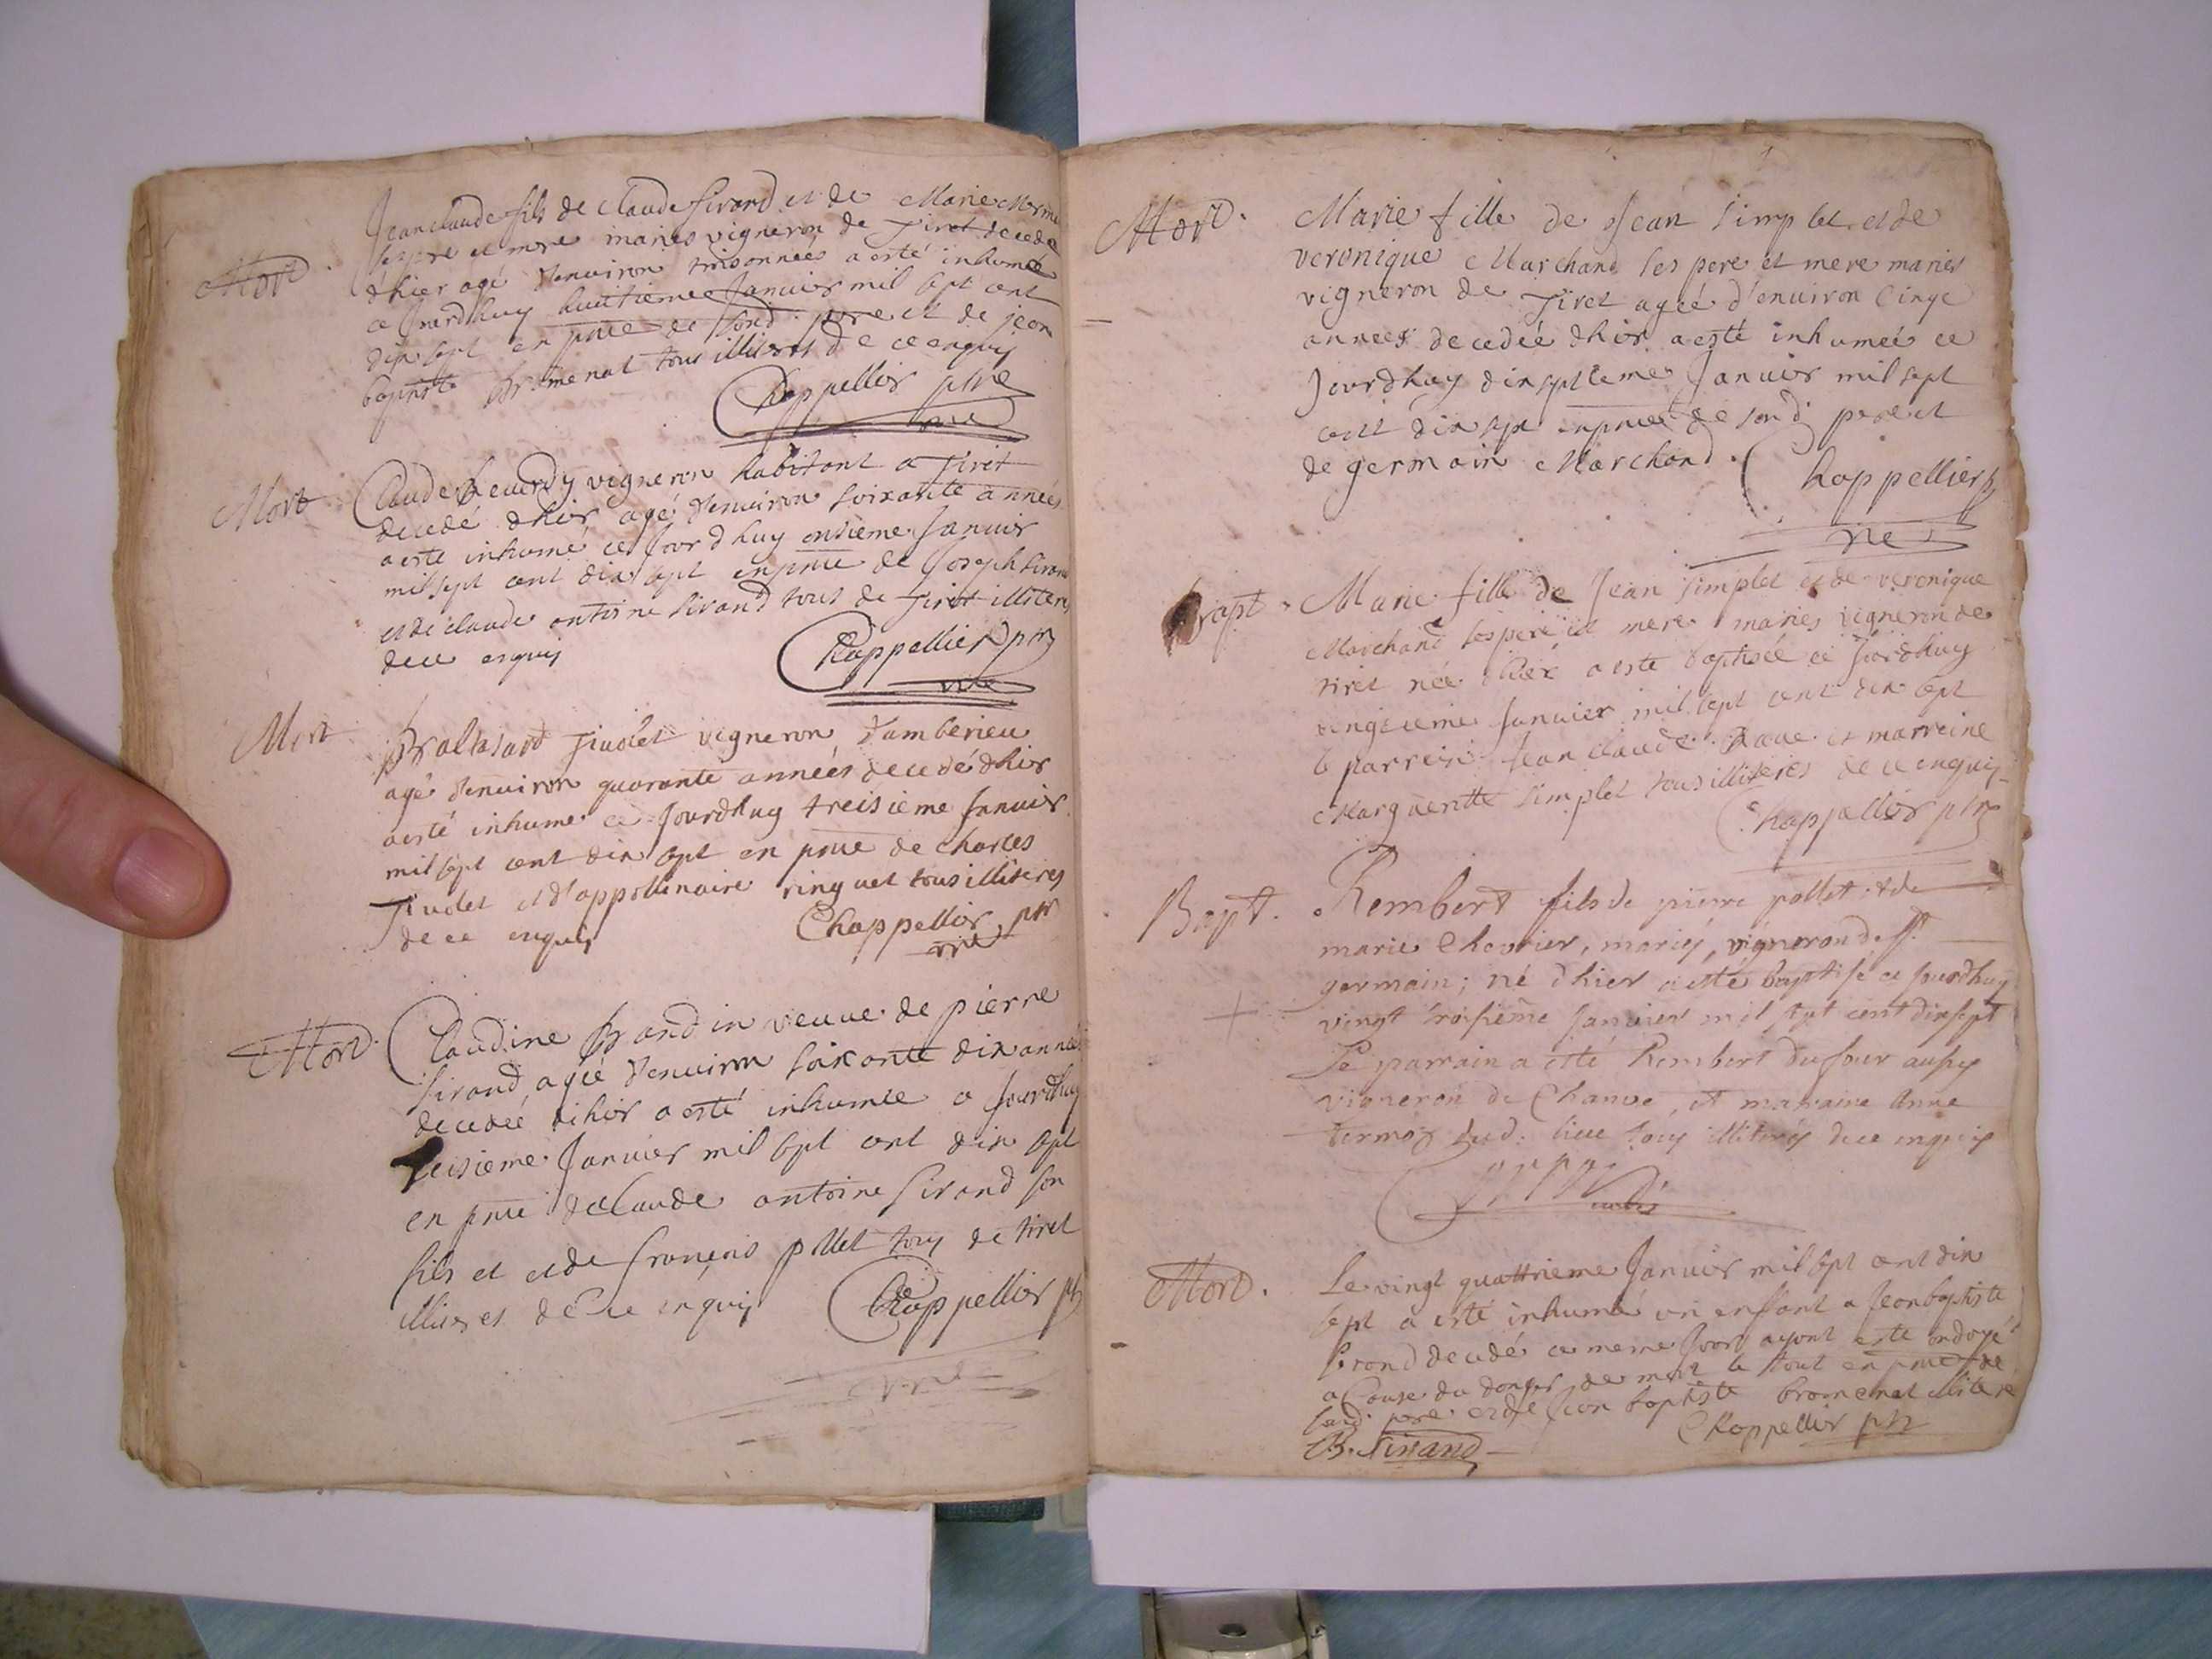 Jean claude fils de claude sirand et de Marie
ses pere et mere mariés vigneron de Tiret decede
Mort
d'hier agé d'enuiron trois onneés a esté inhumé
ce Jourdhuy huitieme Januier mil sept cent
dix sept en pnce de sond. pere et de jean
baptiste bromenat tous illiteres de ce enquis
Chappellier ptre
vic
Mort
Claude vigneron habitant a Tiret
decedé dhier agé d'enuiron soixante années
a esté inhumé ce Jourdhuy onsieme Januier
mil sept cent dix sept en pnce de Joseph siran
et de claude antoine sirand tous de Tiret illiteres
de ce enquis
Chappellier ptr
vic
Mort
Baltasard Tiudet vigneron d'amberieu
agé d'enuiron quarante années decedé dhier
a esté inhumé ce Jourdhuy treisieme Januier
mil sept cent dix sept en pnce de Charles
Tiudet et d'appollinaire ringuet tous illiteres
de ce enquis
Chappellier ptr
vic
Mort
Claudine brandin veuue de pierre
sirand agée d'enuiron soixante dix années
decedeé dhier a esté inhumée ce Jourdhuy
seisieme Januier mil sept cent dix sept
en pnce de Claude antoine sirand son
fils et et de francois pollet tous de tiret
illiteres de ce enquis Chappellier ptr
vic
Mort.
Marie fille de Jean simplet et de
veronique Marchand ses pere et mere mariés
vigneron de Tiret ageé d'enuiron cinqe
années decedeé dhier a esté inhumeé ce
Jourdhuy dixseptieme Januier mil sept
cent dix sept en pnce de sond. pere et
de germain Marchand.
Chappellier p
vic
bapt.
Marie fille de Jean simplet et de veronique
Marchand ses pere et mere mariés vigneron de
tiret neé hier a esté baptiseé ce Jourdhuy
vingtieme Januier mil sept cent dix sept
le parrein Jean claude et marreine
Margueritte simplet tous illiteres de ce enquis
Chappellier ptr
Bapt.
Rembert fils de pierre pollet et de
marie Chevrier, mariés, vigneron de st.
germain; né d'hier a esté baptisé ce jourdhuy
vingt troisieme Januier mil sept cent dixsept
Le parrain a esté Rembert dufour aussy
vigneron de Chanve, et maraine Anne
termoz dud. lieu tous illiterés de ce enquis
curé
Mort.
Le vingt quattrieme Januier mil sept cent dix
sept a esté inhumé un enfant a Jean baptiste
sirand decedé ce meme Jour ayant esté ondoyé
a Cause du danger de mort le tout en pnce de
sond. pere et de Jean baptiste bromenat illitere
B. Sirand
Chappellier ptr